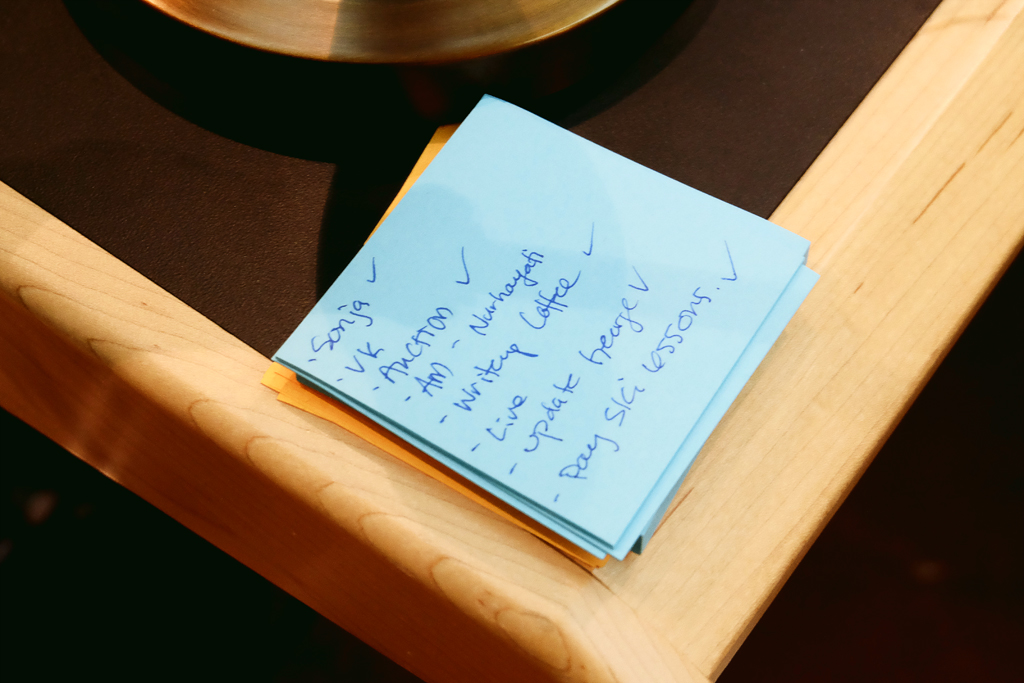 - Sonja ✓
- VK
- Auction ✓
- AM - Nurhayati
- Writeup Coffee ✓
- Live
- update George ✓
- Pay Ski lessons. ✓